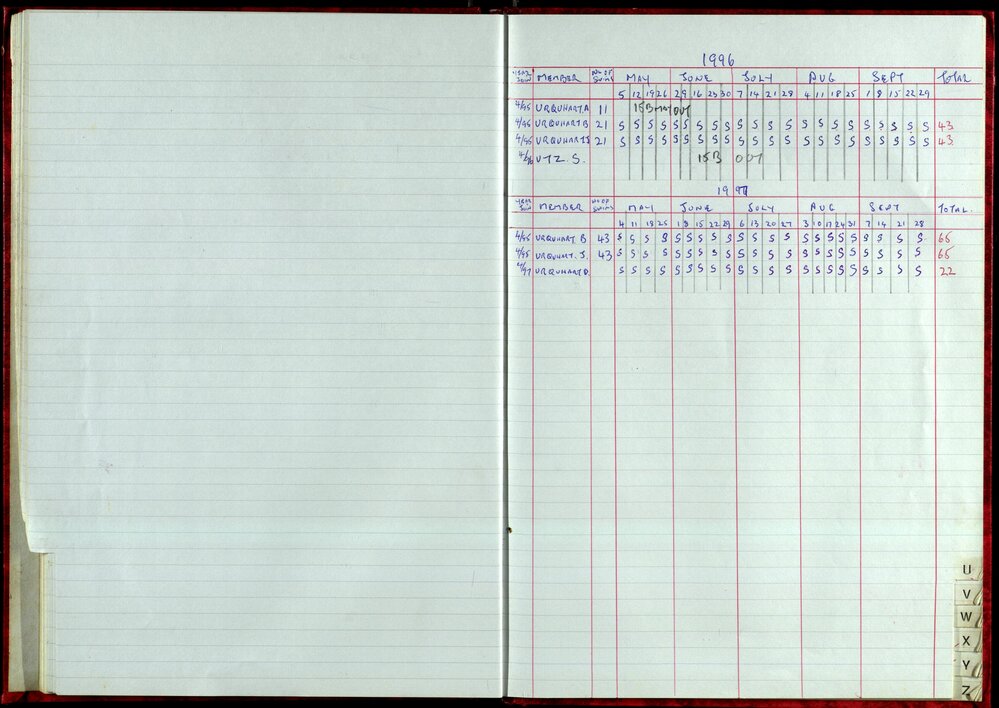 1996
YEAR JOIN MEMBER No OF SWIMS MAY JUNE JULY AUG SEPT TOTAL
5 12 19 26 2 9 16 23 30 7 14 21 28 4 11 18 25 1 8 15 22 29
4/95 URQUHART A 11 OUT
4/95 URQUHART B 21 S S S S S S S S S S S S S S S S S S S S S S 43
4/95 URQUHART J 21 S S S S S S S S S S S S S S S S S S S S S S 43
4/96 UTZ. S. 15B OUT
1997
YEAR JOIN MEMBER No OF SWIMS MAY JUNE JULY AUG SEPT TOTAL.
4 11 18 25 1 8 15 22 29 6 13 20 27 3 10 17 24 31 7 14 21 28
4/95 URQUHART B 43 S S S S S S S S S S S S S S S S S S S S S S 65
4/95 URQUHART. J. 43 S S S S S S S S S S S S S S S S S S S S S S 65
4/97 URQUHART D. S S S S S S S S S S S S S S S S S S S S S S 22
U
V
W
X
Y
Z